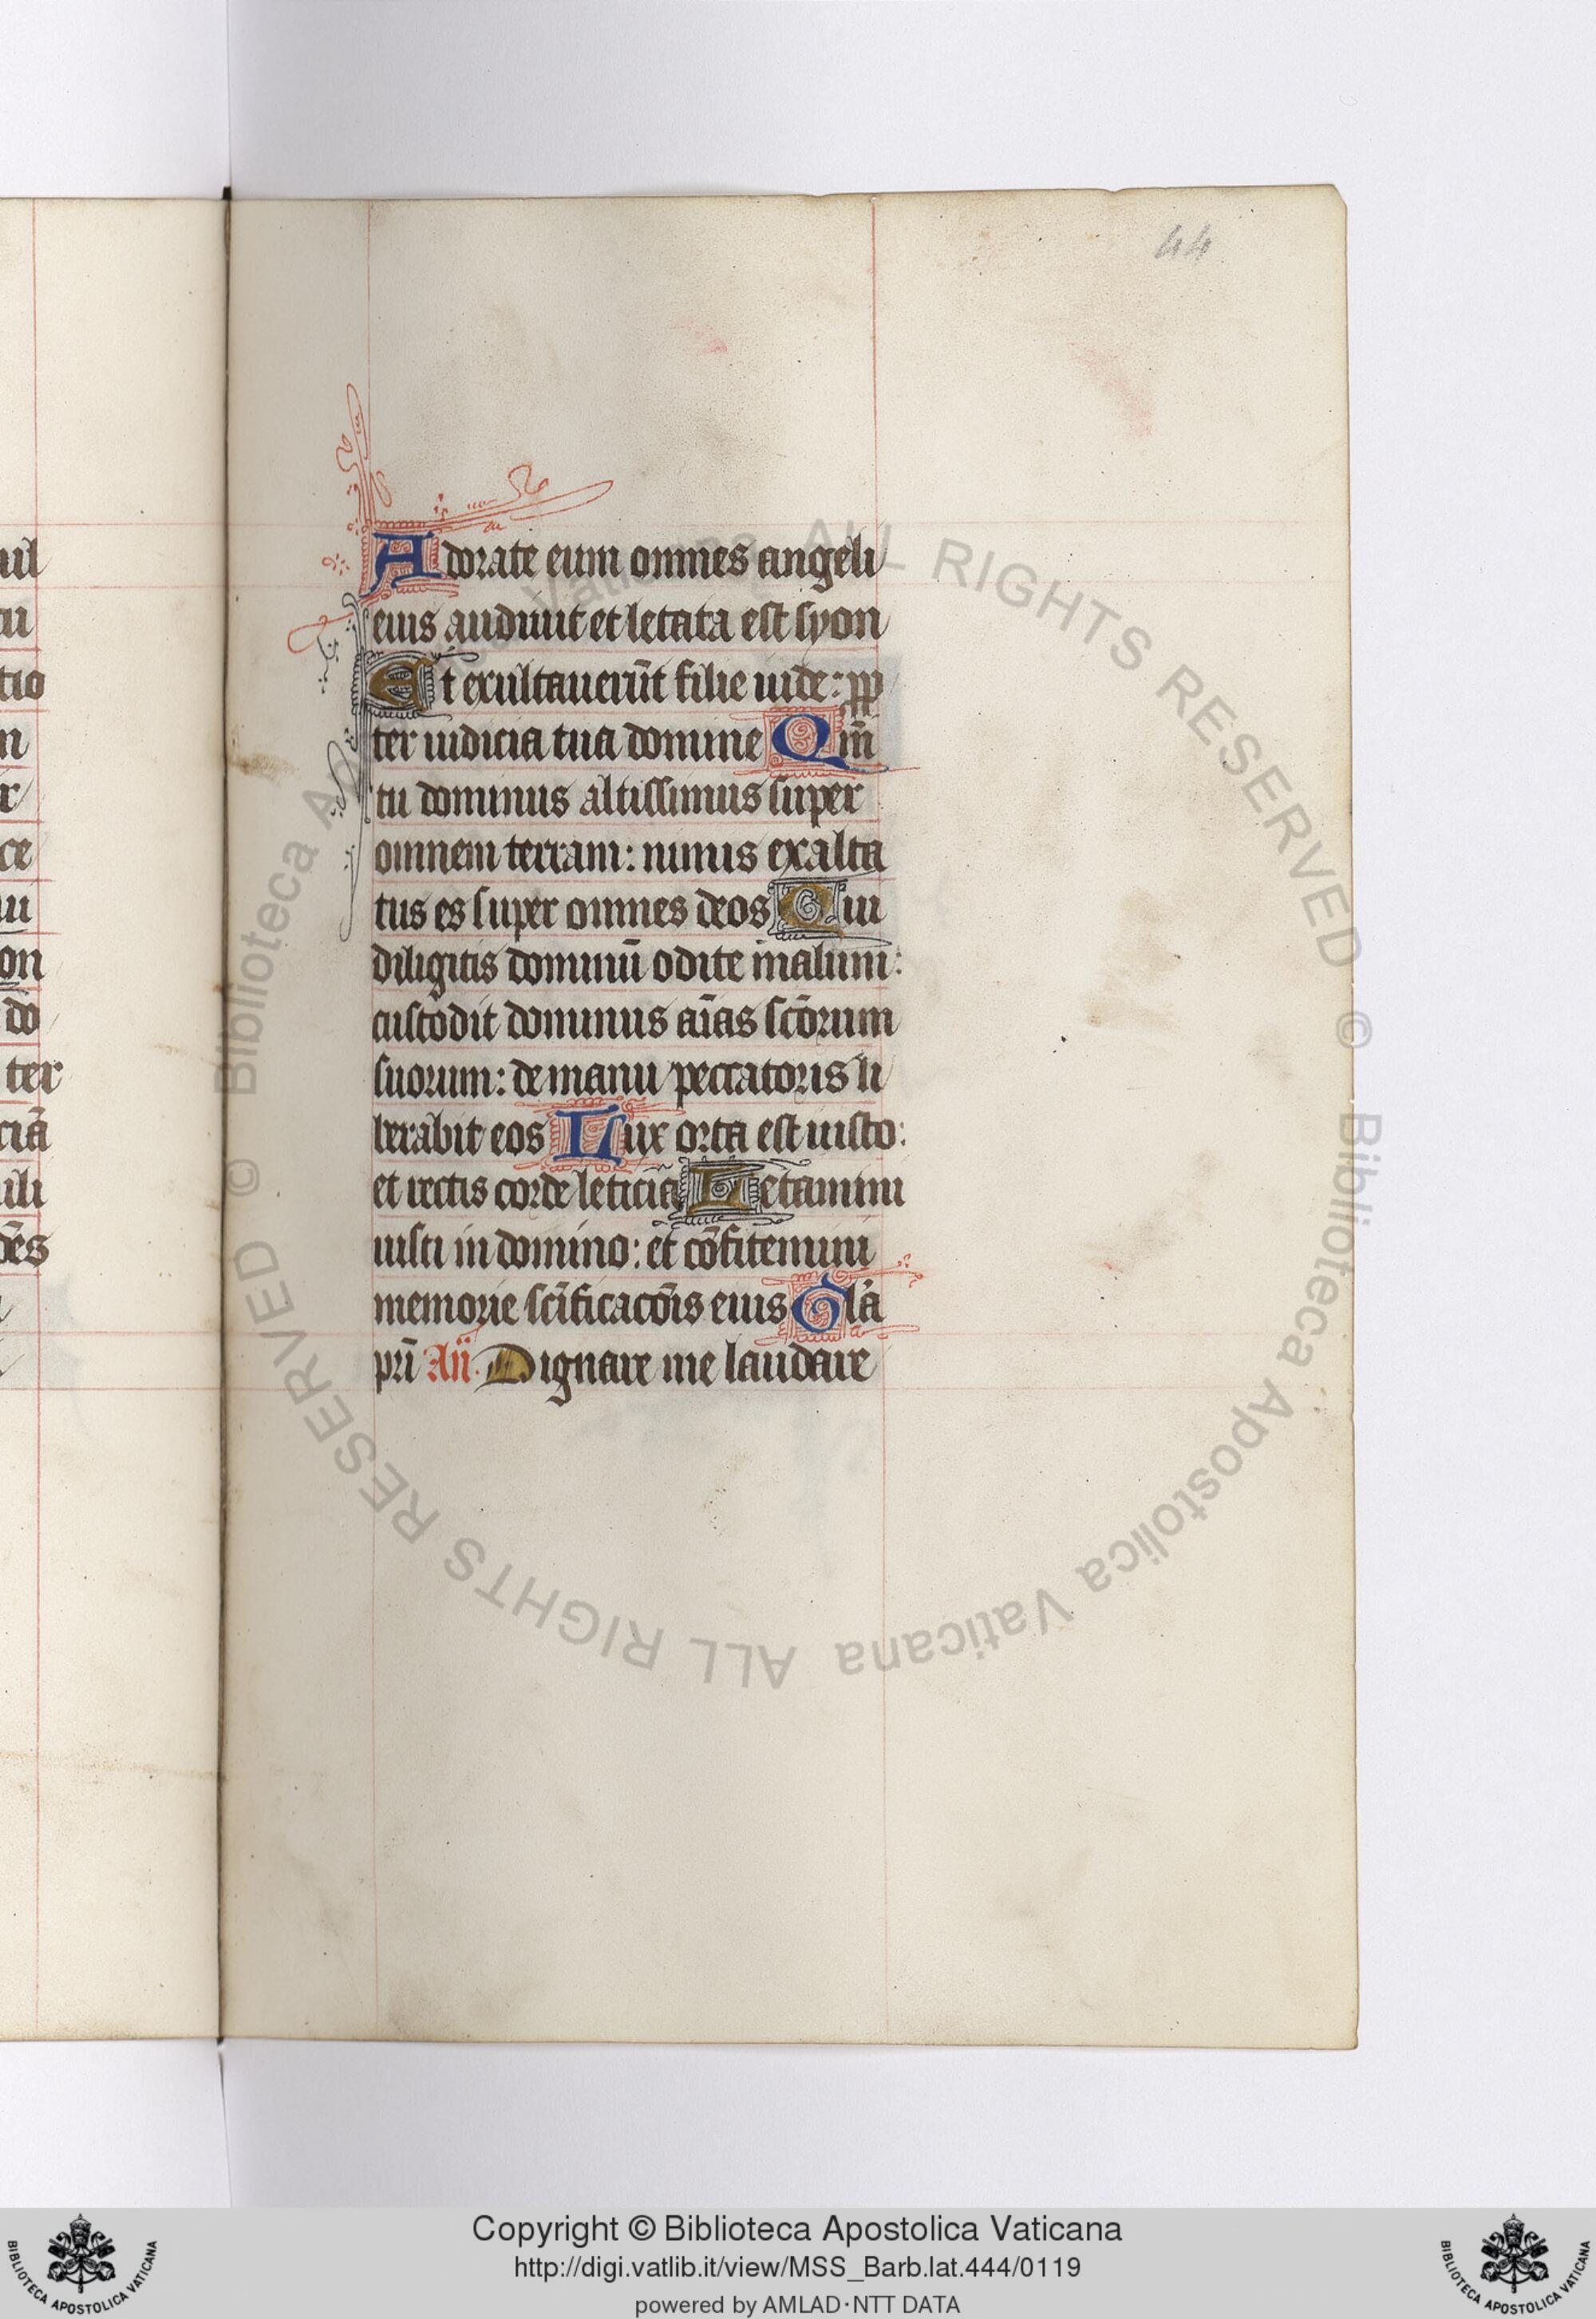 44
Adorate eum omnes angeli
eius audiuit et letata est syon
Et exultauerūt filie iude: pp
ter iudicia tua domine Qm̄
tu dominus altissimus super
omnem terram: nimis exalta
tus es super omnes deos Qui
diligitis dominū odite malum:
custodit dominus aīas scōrum
suorum: de manu peccatoris li
berabit eos Lux orta est iusto:
et rectis corde leticia Letamini
iusti in domino: et cōfitemini
memorie scīficacōis eius Glā
prī Añ. Dignare me laudare
uil
tu
tio
n
r
ce
on
do
ter
ciā
ili
Copyright © Biblioteca Apostolica Vaticana
http://digi.vatlib.it/view/MSS_Barb.lat.444/0119
powered by AMLAD·NTT DATA
BIBLIOTECA APOSTOLICA VATICANA
BIBLIOTECA APOSTOLICA VATICANA
© Biblioteca Apostolica Vaticana ALL RIGHTS RESERVED © Biblioteca Apostolica Vaticana ALL RIGHTS RESERVED